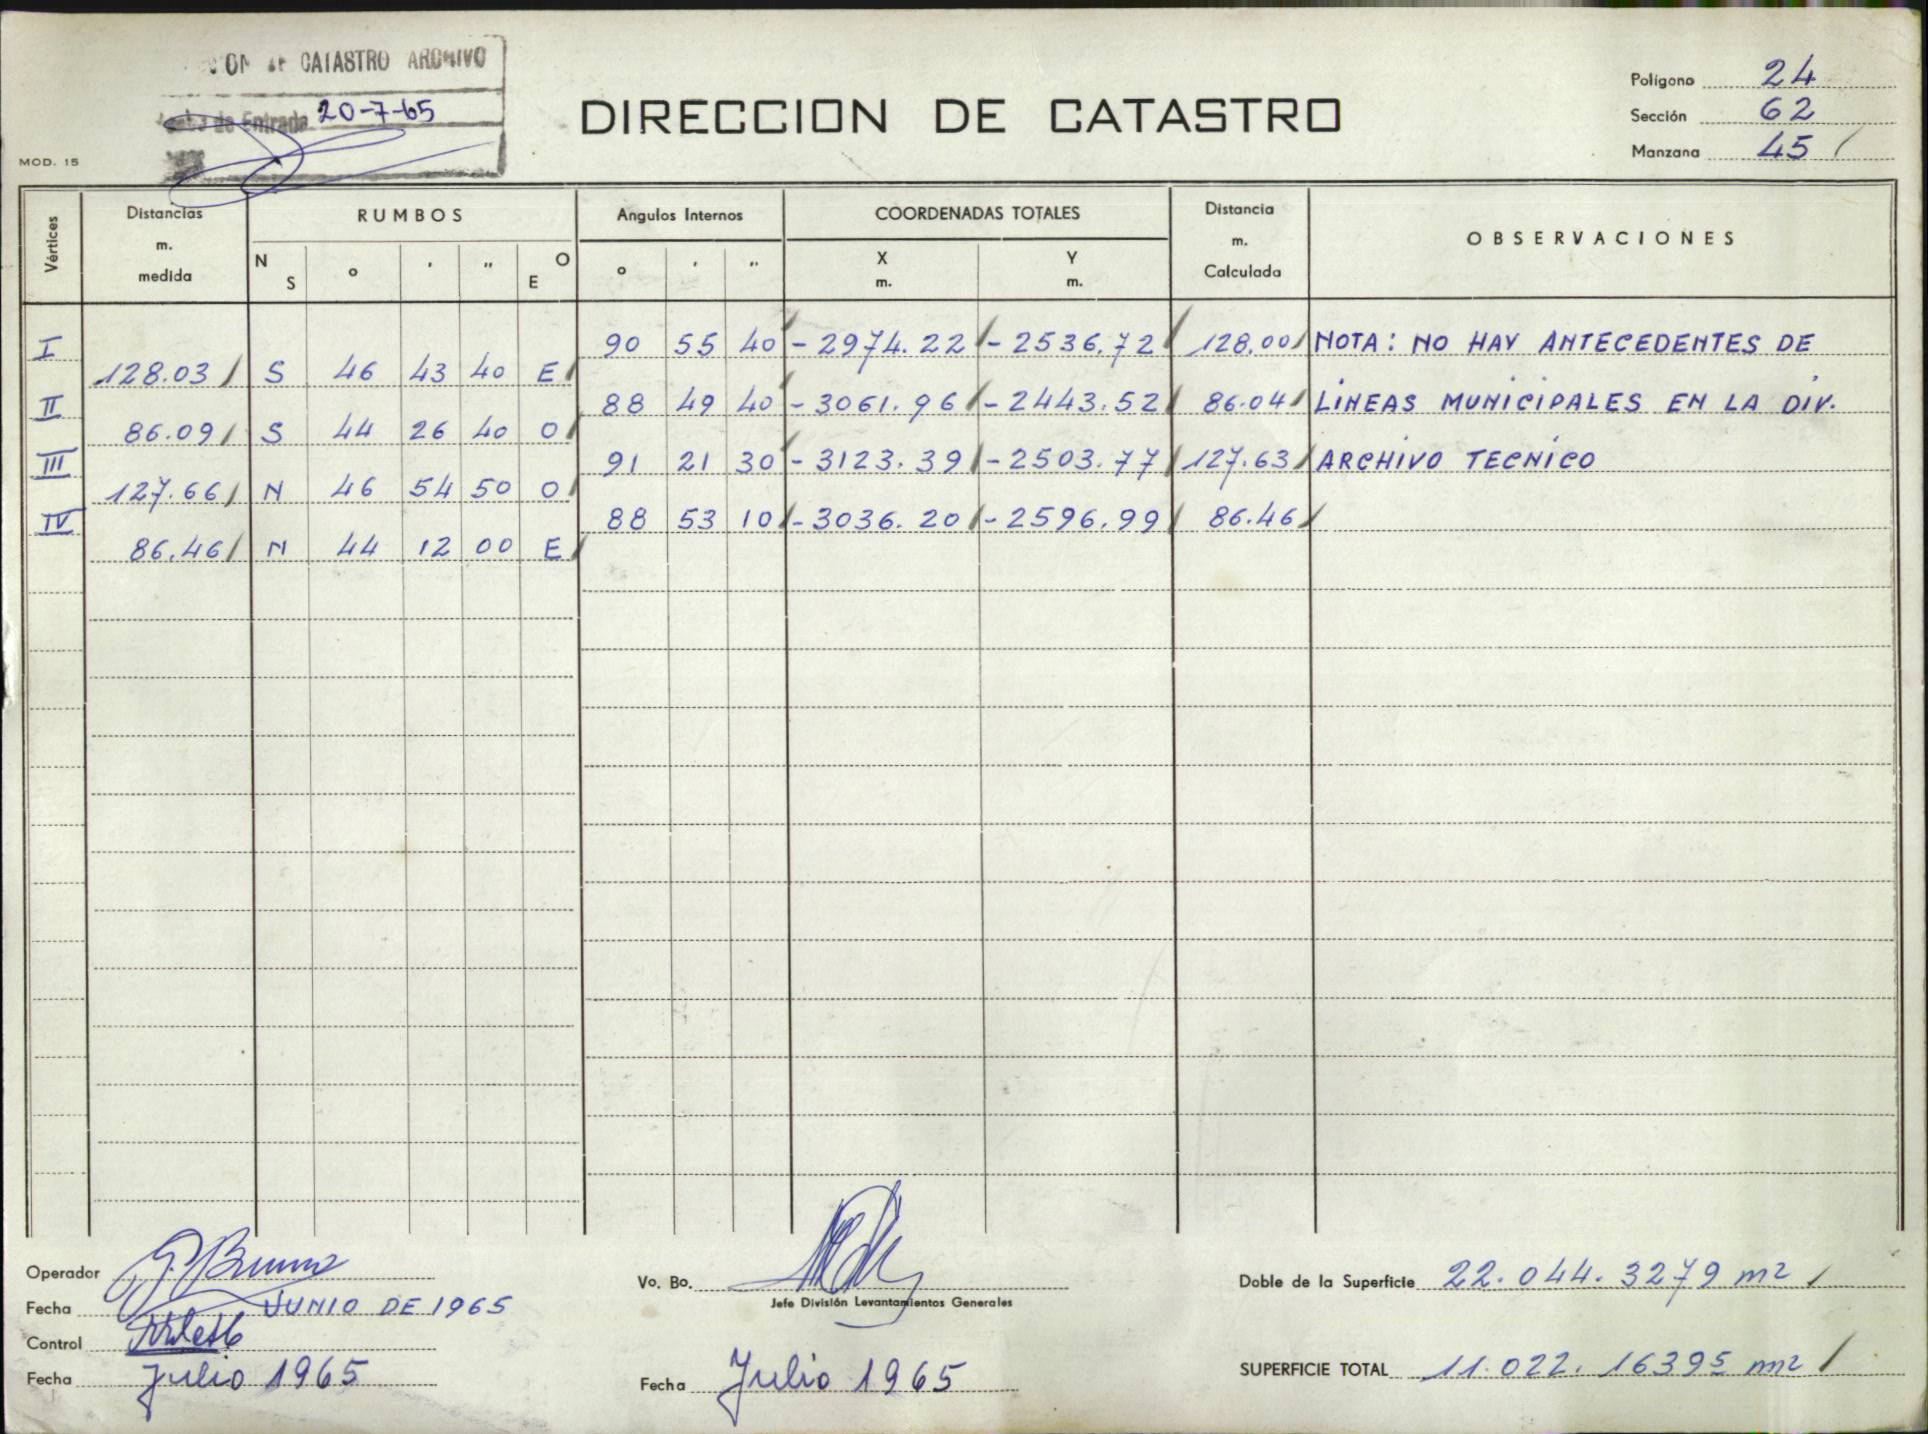 CATASTRO ARCHIVO
de Entrada 20-7-65
MOD. 15
DIRECCION DE CATASTRO
Polígono 24
Sección 62
Manzana 45 /
Vértices
Distancias m. medida
RUMBOS
N S ° ' " O E
Angulos Internos
° ' "
COORDENADAS TOTALES
X m. Y m.
Distancia m. Calculada
OBSERVACIONES
I 90 55 40 -2974.22 -2536.72 128.00 NOTA: NO HAY ANTECEDENTES DE
128.03 S 46 43 40 E
II 88 49 40 -3061.96 -2443.52 86.04 LINEAS MUNICIPALES EN LA DIV.
86.09 S 44 26 40 O
III 91 21 30 -3123.39 -2503.77 127.63 ARCHIVO TECNICO
127.66 N 46 54 50 O
IV 88 53 10 -3036.20 -2596.99 86.46
86.46 N 44 12 00 E
Operador
Fecha JUNIO DE 1965
Control
Fecha Julio 1965
Vo. Bo.
Jefe División Levantamientos Generales
Fecha Julio 1965
Doble de la Superficie 22.044.3279 m2
SUPERFICIE TOTAL 11.022.16395 m2